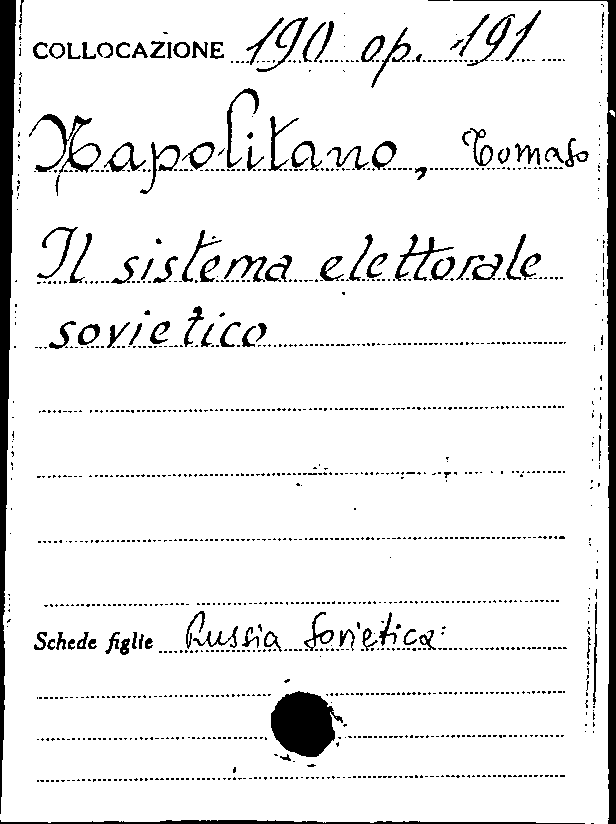 COLLOCAZIONE 190 op. 191
Napolitano, Tomaso
Il sistema elettorale
sovietico
Schede figlie Russia Sovietica: